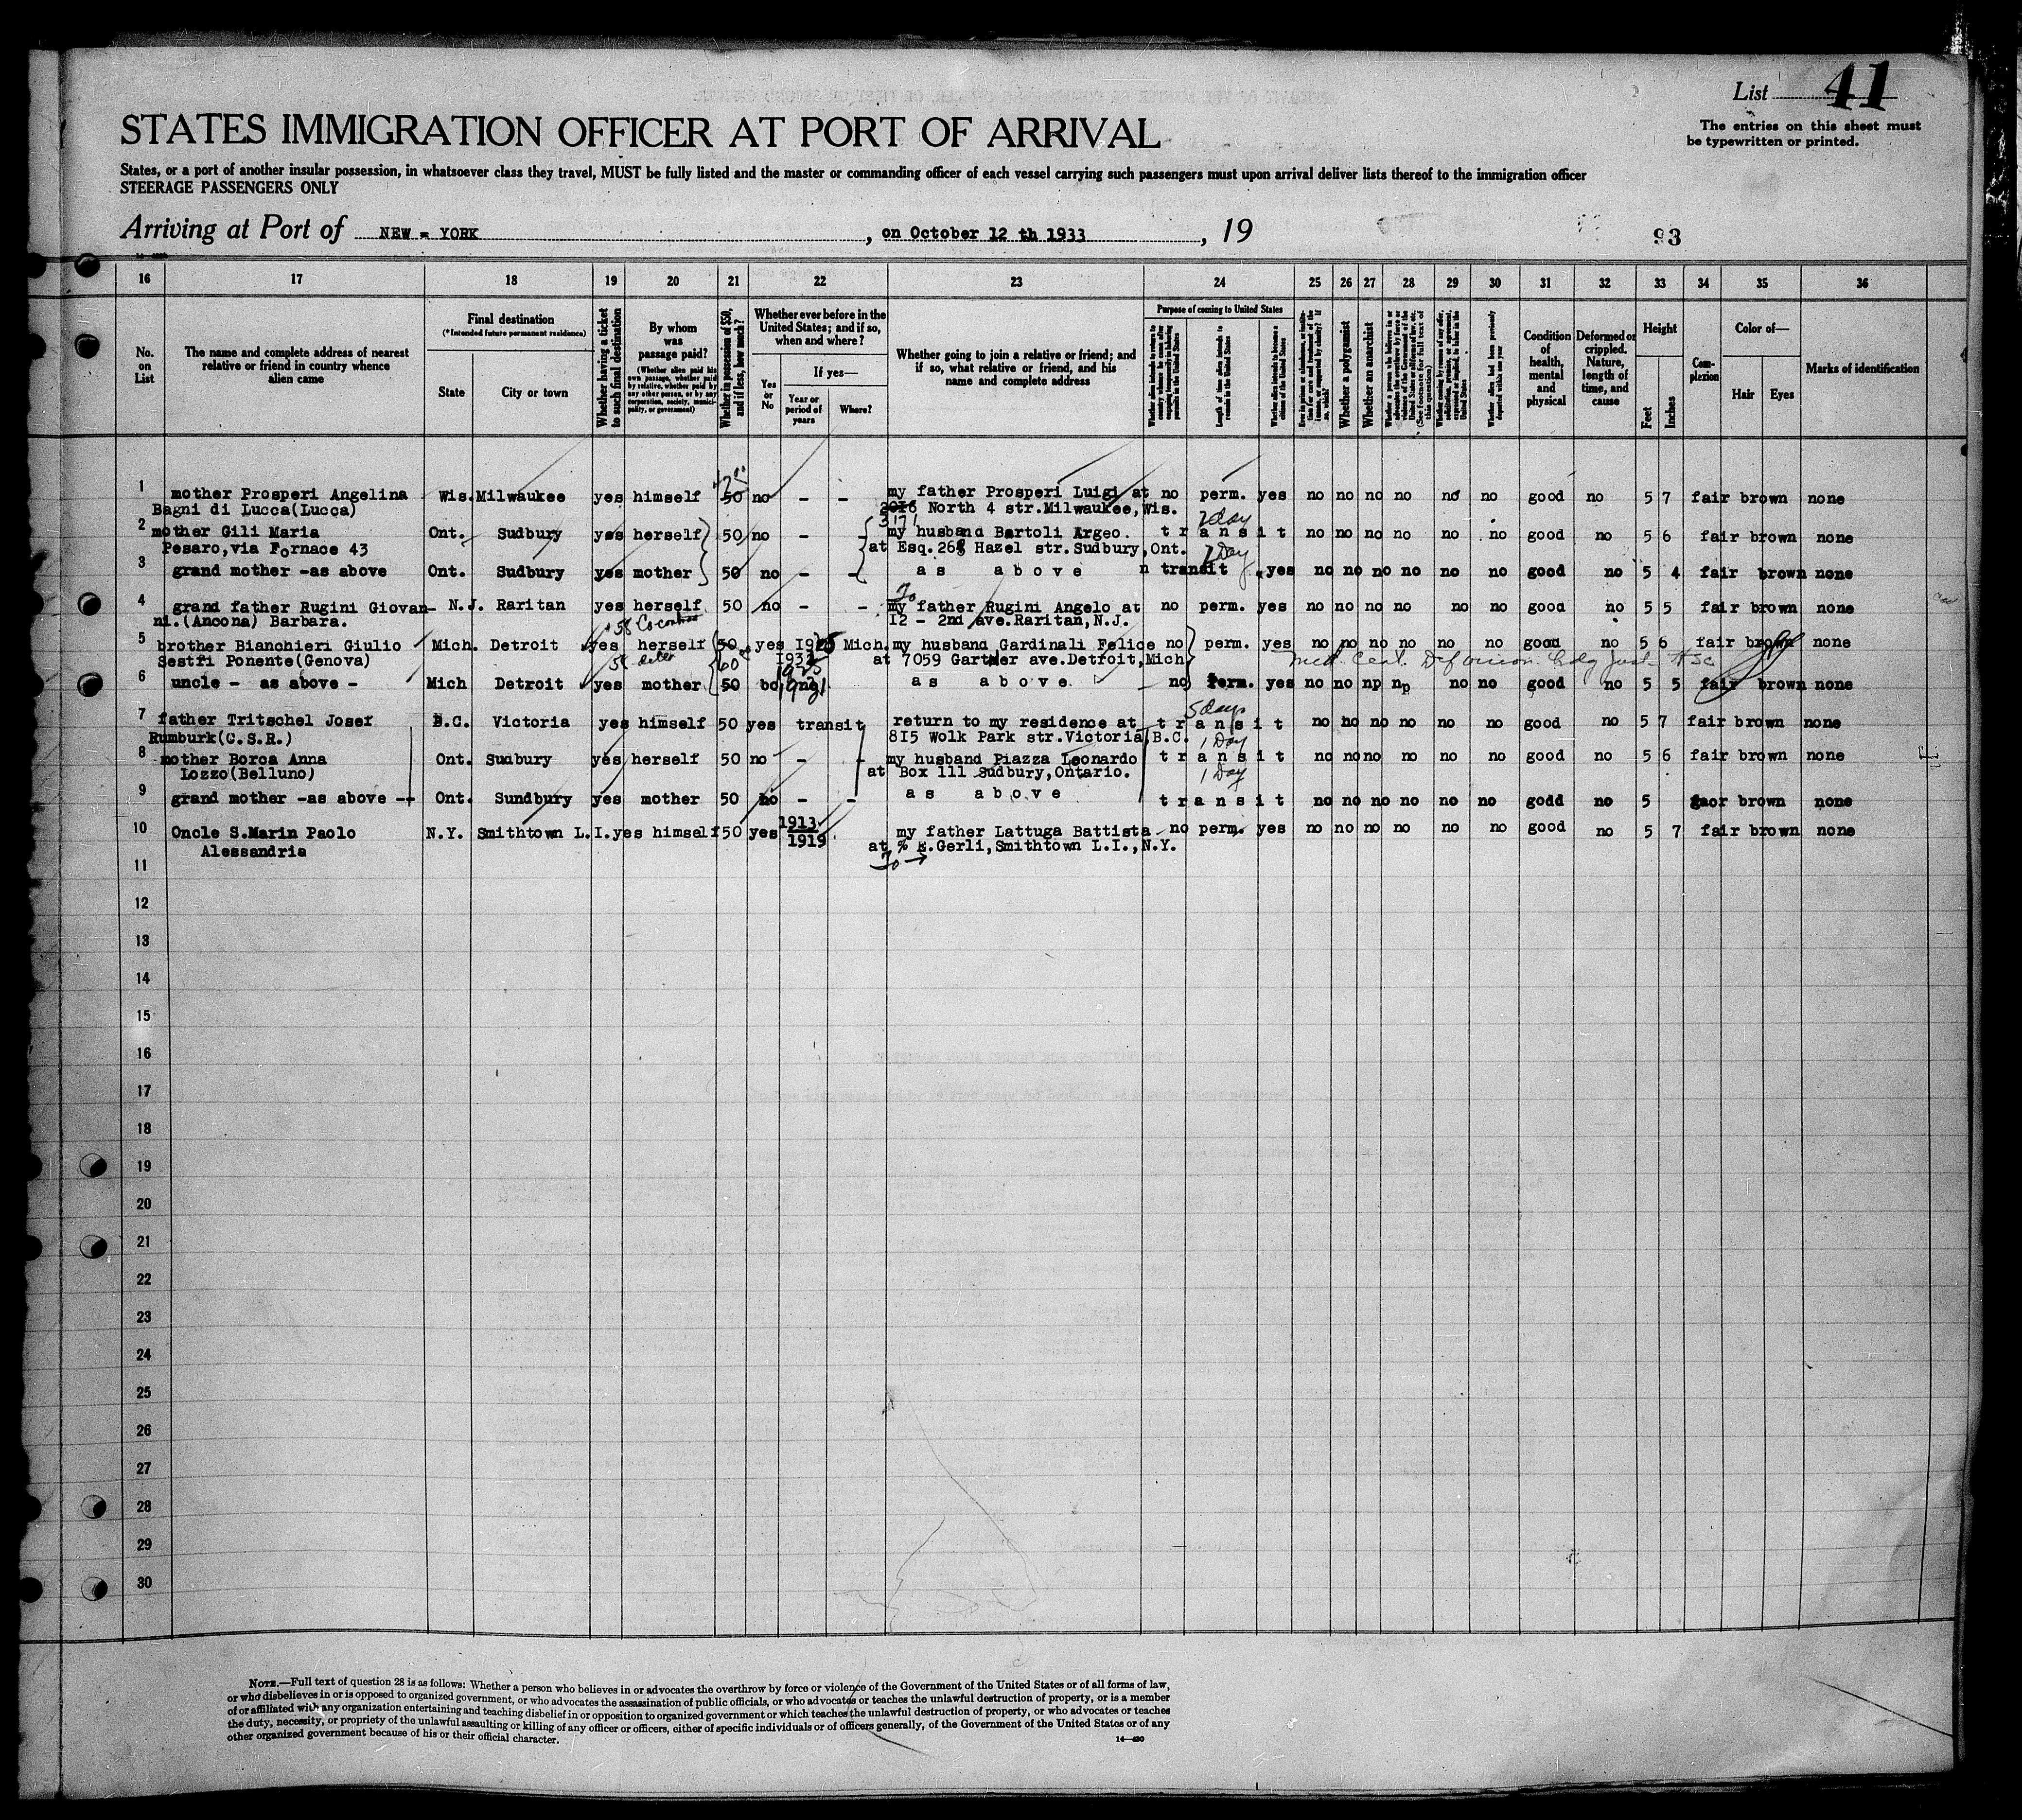 List 41
The entries on this sheet must
be typewritten or printed.
STATES IMMIGRATION OFFICER AT PORT OF ARRIVAL
States, or a port of another insular possession, in whatsoever class they travel, MUST be fully listed and the master or commanding officer of each vessel carrying such passengers must upon arrival deliver lists thereof to the immigration officer
STEERAGE PASSENGERS ONLY
Arriving at Port of NEW = YORK, on October 12 th 1933, 19
93
16 17 18 19 20 21 22 23 24 25 26 27 28 29 30 31 32 33 34 35 36
No. on List
The name and complete address of nearest
relative or friend in country whence
alien came
Final destination
(*Intended future permanent residence)
State
City or town
Whether having a ticket
to such final destination
By whom
was
passage paid?
(Whether alien paid his
own passage, whether paid
by relative, whether paid by
any other person, or by any
corporation, society, munici-
pality, or government)
Whether in possession of $50,
and if less, how much?
Whether ever before in the
United States; and if so,
when and where?
Yes
or
No
If yes—
Year or
period of
years
Where?
Whether going to join a relative or friend; and
if so, what relative or friend, and his
name and complete address
Purpose of coming to United States
Whether alien intends to return to
country whence he came after
engaging temporarily in laboring
pursuits in the United States
Length of time alien intends to
remain in the United States
Whether alien intends to become a
citizen of the United States
Ever in prison or almshouse, or institu-
tion for care and treatment of the
insane, or supported by charity? If
so, which?
Whether a polygamist
Whether an anarchist
(See footnote for full text of
this question)
Whether alien had been previously
deported within one year
Condition
of
health,
mental
and
physical
Deformed or
crippled.
Nature,
length of
time, and
cause
Height
Feet
Inches
Com-
plexion
Color of—
Hair
Eyes
Marks of identification
1 mother Prosperi Angelina Wis. Milwaukee yes himself 50 no - - my father Prosperi Luigi at no perm. yes no no no no no no good no 5 7 fair brown none
Bagni di Lucca(Lucca) 2016 North 4 str.Milwaukee,Wis.
3171
2 mother Gili Maria Ont. Sudbury yes herself 50 no - - my husband Bartoli Argeo. transit no no no no no no good no 5 6 fair brown none
Pesaro,via Fornace 43 at Esq.268 Hazel str.Sudbury,Ont.
3 grand mother -as above Ont. Sudbury yes mother 50 no - - as above n transit yes no no no no no no good no 5 4 fair brown none
To
4 grand father Rugini Giovan- N.J. Raritan yes herself 50 no - my father Rugini Angelo at no perm. yes no no no no no no good no 5 5 fair brown none
ni.(Ancona) Barbara. I2 - 2nd ave.Raritan,N.J.
5 brother Bianchieri Giulio Mich. Detroit yes herself 50 yes Mich. my husband Gardinali Felice no perm. yes no no no no no no good no 5 6 fair brown none
Sestri Ponente(Genova) at 7059 Gartner ave.Detroit,Mich
6 uncle - as above - Mich Detroit yes mother 50 as above no perm. yes no no np np no no good no 5 5 fair brown none
5 days
7 father Tritschel Josef B.C. Victoria yes himself 50 yes transit return to my residence at transit no no no no no no good no 5 7 fair brown none
Rumburk(C.S.R.) 8I5 Wolk Park str.Victoria,B.C.
1 Day
8 mother Borca Anna Ont. Sudbury yes herself 50 no - - my husband Piazza Leonardo transit no no no no no no good no 5 6 fair brown none
Lozzo(Belluno) at Box 111 Sudbury,Ontario.
1 Day
9 grand mother -as above -- Ont. Sundbury yes mother 50 no - - as above transit no no no no no no godd no 5 gaor brown none
10 Oncle S.Marin Paolo N.Y. Smithtown L.I. yes himself 50 yes 1913 1919 my father Lattuga Battista no perm. yes no no no no no no good no 5 7 fair brown none
Alessandria at % E.Gerli,Smithtown L.I.,N.Y.
To →
11
12
13
14
15
16
17
18
19
20
21
22
23
24
25
26
27
28
29
30
NOTE.—Full text of question 28 is as follows: Whether a person who believes in or advocates the overthrow by force or violence of the Government of the United States or of all forms of law,
or who disbelieves in or is opposed to organized government, or who advocates the assassination of public officials, or who advocates or teaches the unlawful destruction of property, or is a member
of or affiliated with any organization entertaining and teaching disbelief in or opposition to organized government or which teaches the unlawful destruction of property, or who advocates or teaches
the duty, necessity, or propriety of the unlawful assaulting or killing of any officer or officers, either of specific individuals or of officers generally, of the Government of the United States or of any
other organized government because of his or their official character.
14—430